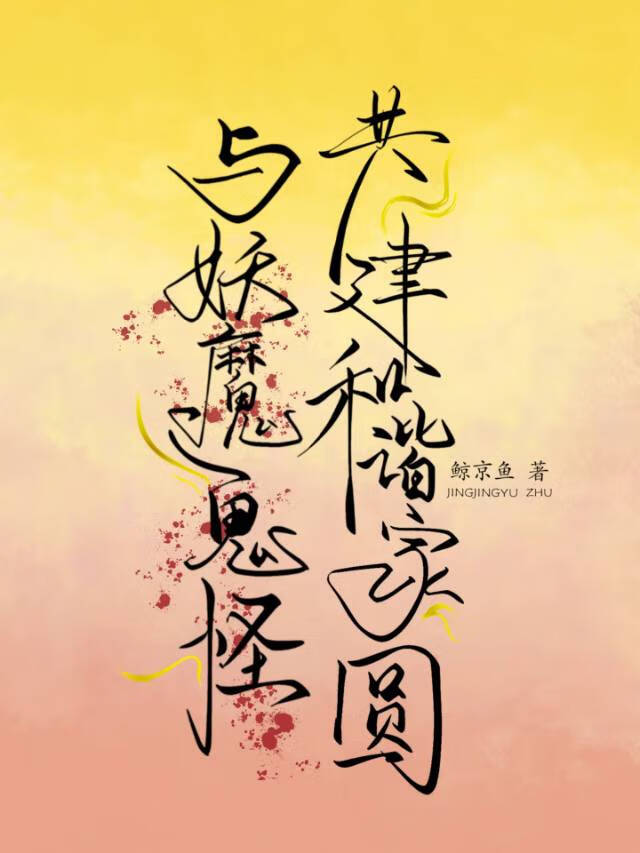 与妖魔鬼怪
共建和谐家圆
鲸京鱼 著
JINGJINGYU ZHU